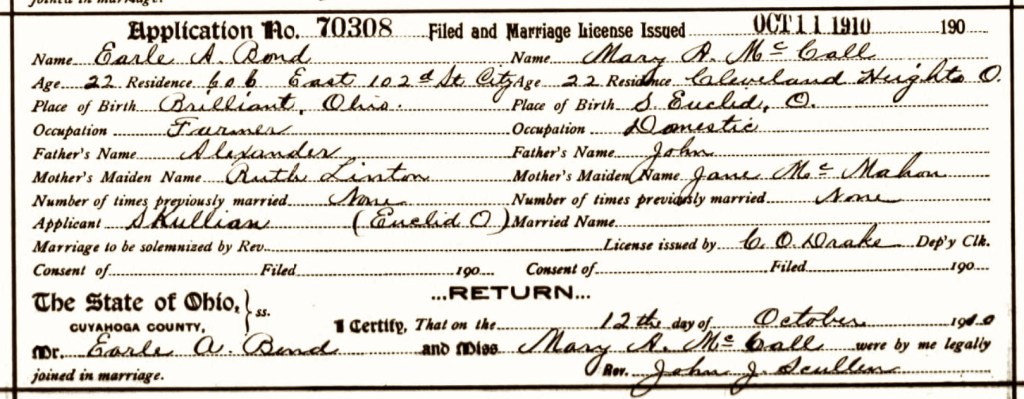 joined in marriage.
Application No. 70308 Filed and Marriage License Issued OCT 11 1910 190
Name Earle A. Bond Name Mary A. McCall
Age 22 Residence 606 East 102d St City Age 22 Residence Cleveland Heights O.
Place of Birth Brilliant, Ohio. Place of Birth S. Euclid, O.
Occupation Farmer Occupation Domestic
Father's Name Alexander Father's Name John
Mother's Maiden Name Ruth Linton Mother's Maiden Name Jane McMahon
Number of times previously married None Number of times previously married None
Applicant (Euclid O) Married Name
Marriage to be solemnized by Rev. License issued by C. O. Drake Dep'y Clk.
Consent of Filed 190 Consent of Filed 190
The State of Ohio, } ss. ...RETURN...
CUYAHOGA COUNTY, I Certify, That on the 12th day of October 1910
Mr. Earle A. Bond and Miss Mary A. McCall were by me legally
joined in marriage. Rev. John J. Scullen